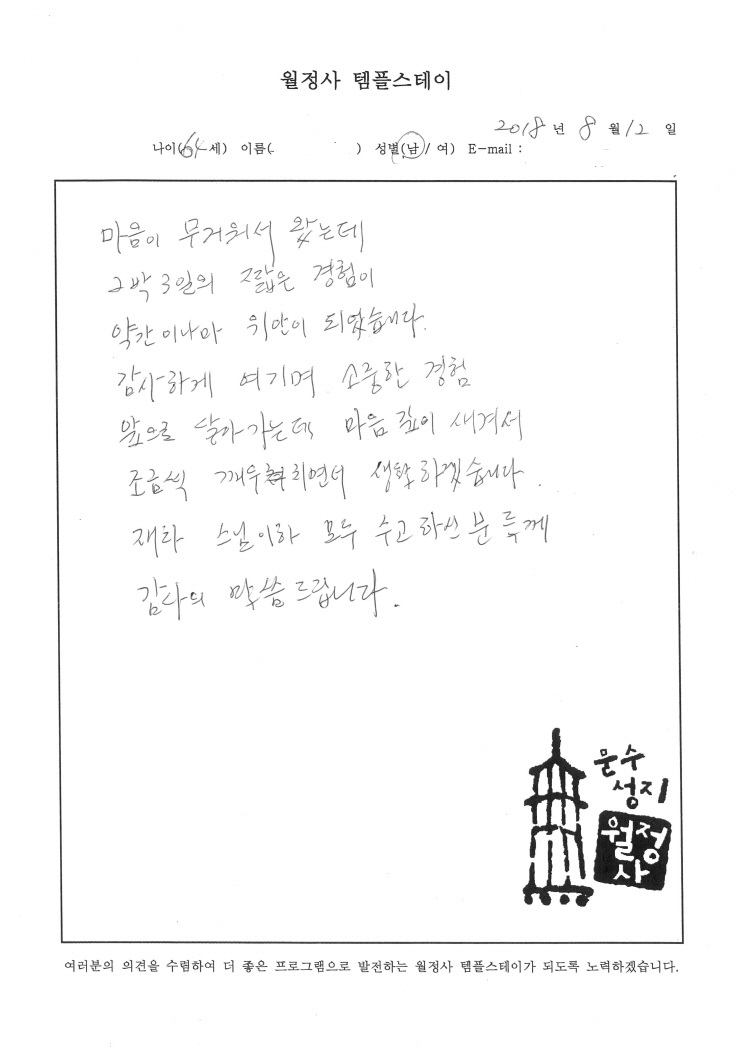 월정사 템플스테이
2018 년 8 월 12 일
나이(64세) 이름( ) 성별(남/ 여) E-mail :
마음이 무거워서 왔는데
2박 3일의 짧은 경험이
약간이나마 위안이 되었습니다.
감사하게 여기며 소중한 경험
앞으로 살아가는데 마음 깊이 새겨서
조금씩 깨우치면서 생활하겠습니다.
스님이하 모두 수고하신 분들께
감사의 말씀드립니다.
문수
성지
월정
사
여러분의 의견을 수렴하여 더 좋은 프로그램으로 발전하는 월정사 템플스테이가 되도록 노력하겠습니다.